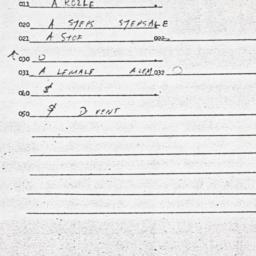 011 A ROZLE
020 A STEPS STEPSALE
021 A STOP 022
030 O
031 A LEMALE ALEM 032 O
040 $
050 $ D VENT